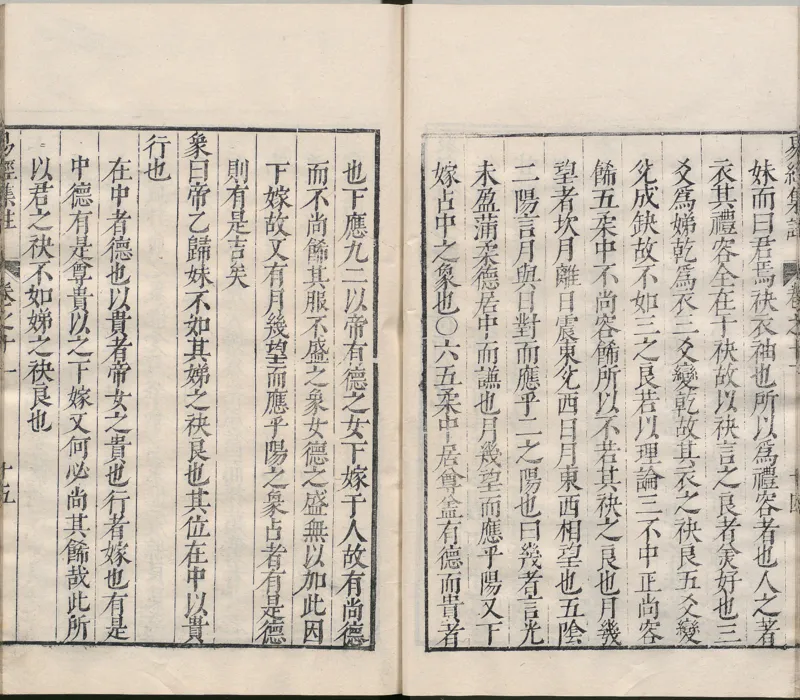 易經集註
卷之十一
十四
妹而曰君焉袂衣袖也所以爲禮容者也人之著
衣其禮容全在于袂故以袂言之良者美好也三
爻爲娣乾爲衣三爻變乾故其衣之袂良五爻變
兊成缺故不如三之良若以理論三不中正尚容
餙五柔中不尚容餙所以不若其袂之良也月幾
望者坎月離日震東兊西日月東西相望也五陰
二陽言月與日對而應乎二之陽也曰幾者言光
未盈蒲柔德居中而謙也月幾望而應乎陽又下
嫁占中之象也〇六五柔中居尊葢有德而貴者
也下應九二以帝有德之女下嫁于人故有尚德
而不尚餙其服不盛之象女德之盛無以加此因
下嫁故又有月幾望而應乎陽之象占者有是德
則有是吉矣
象曰帝乙歸妹不如其娣之袂良也其位在中以貴
行也
在中者德也以貴者帝女之貴也行者嫁也有是
中德有是尊貴以之下嫁又何必尚其餙哉此所
以君之袂不如娣之袂良也
易經集註
卷之十一
十五